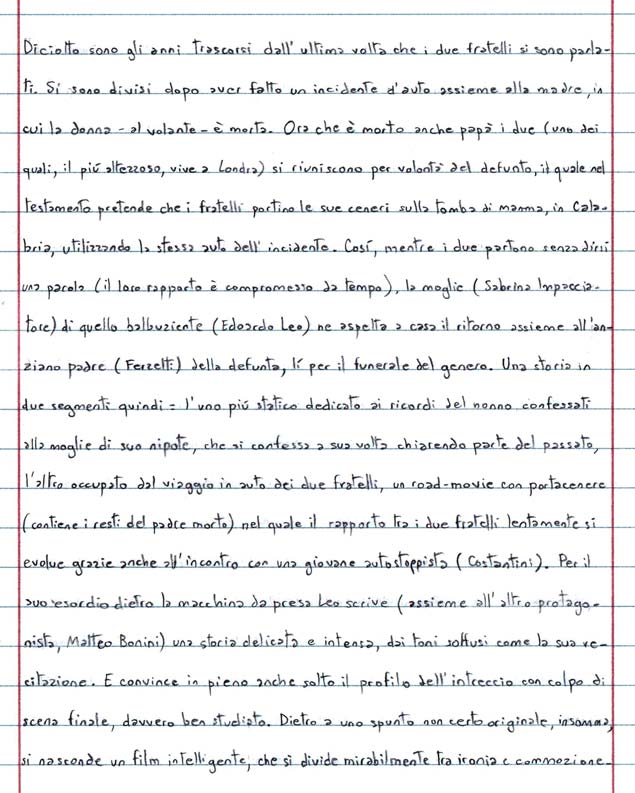 Diciotto sono gli anni trascorsi dall'ultima volta che i due fratelli si sono parla-
ti. Si sono divisi dopo aver fatto un incidente d'auto assieme alla madre, in
cui la donna - al volante - è morta. Ora che è morto anche papà i due (uno dei
quali, il più altezzoso, vive a Londra) si riuniscono per volontà del defunto, il quale nel
testamento pretende che i fratelli portino le sue ceneri sulla tomba di mamma, in Cala-
bria, utilizzando la stessa auto dell'incidente. Così, mentre i due partono senza dirsi
una parola (il loro rapporto è compromesso da tempo), la moglie (Sabrina Impaccia-
tore) di quello balbuziente (Edoardo Leo) ne aspetta a casa il ritorno assieme all'an-
ziano padre (Ferzetti) della defunta, lì per il funerale del genero. Una storia in
due segmenti quindi: l'uno più statico dedicato ai ricordi del nonno confessati
alla moglie di suo nipote, che si confessa a sua volta chiarendo parte del passato,
l'altro occupato dal viaggio in auto dei due fratelli, un road-movie con portacenere
(contiene i resti del padre morto) nel quale il rapporto tra i due fratelli lentamente si
evolve grazie anche all'incontro con una giovane autostoppista (Costantini). Per il
suo esordio dietro la macchina da presa Leo scrive (assieme all'altro protago-
nista, Matteo Bonini) una storia delicata e intensa, dai toni soffusi come la sua re-
citazione. E convince in pieno anche sotto il profilo dell'intreccio con colpo di
scena finale, davvero ben studiato. Dietro a uno spunto non certo originale, insomma,
si nasconde un film intelligente, che si divide mirabilmente tra ironia e commozione.